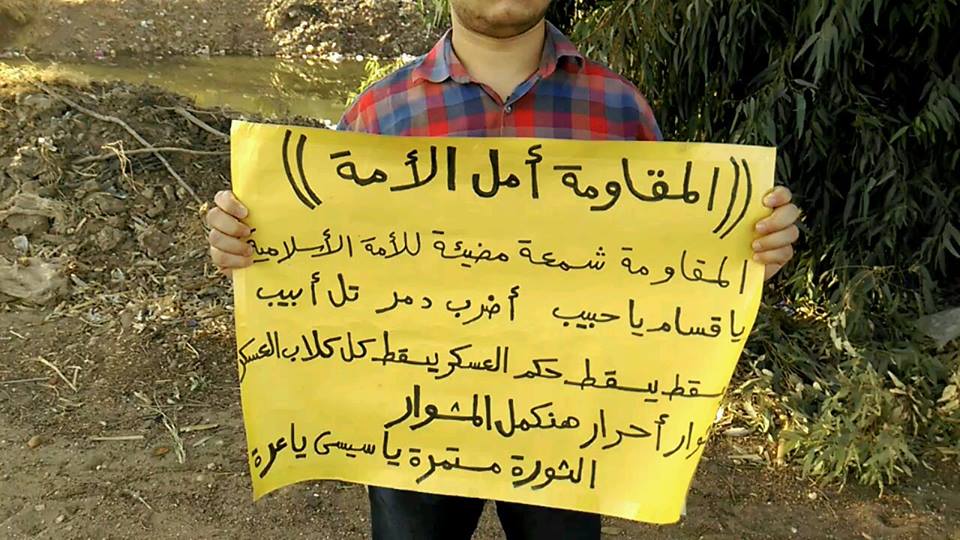 ((المقاومة أمل الأمة))
المقاومة شمعة مضيئة للأمة الإسلامية
يا قسام يا حبيب أضرب دمر تل أبيب
يسقط يسقط حكم العسكر يسقط كل كلاب العسكر
ثوار أحرار هنكمل المشوار
الثورة مستمرة يا سيسى يا عرة